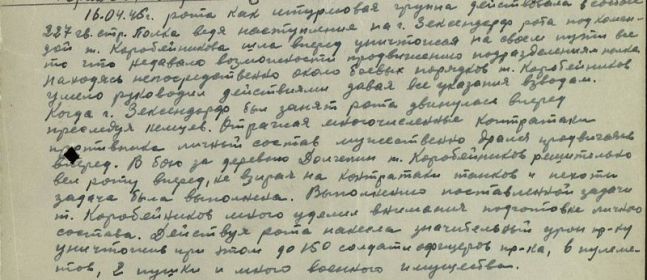 16.04.45г. рота как штурмовая группа действовала в составе
227 гв. стр. Полка ведя наступления на г. Зексендорф рота под коман-
дой т. Коробейникова шла вперед уничтожая на своем пути все
то что недавало возможности продвижению подразделениям полка
находясь непосредственно около боевых порядков т. Коробейников
умело руководил действиями давая все указания взводам.
Когда г. Зексендорф был занят рота двинулась вперед
преследуя немцев. Отражая многочисленные контратаки
противника личный состав мужественно дрался продвигаясь
вперед. В бою за деревню т. Коробейников решительно
вел роту вперед, не взирая на контратаки танков и пехоты
задача была выполнена. Выполнению поставленной задачи
т. Коробейников много уделил внимания подготовке личного
состава. Действуя рота нанесла значительный урон пр-ку
уничтожив при этом до 150 солдат и офицеров пр-ка, 6 пулеме-
тов, 2 пушки и много военного имущества.